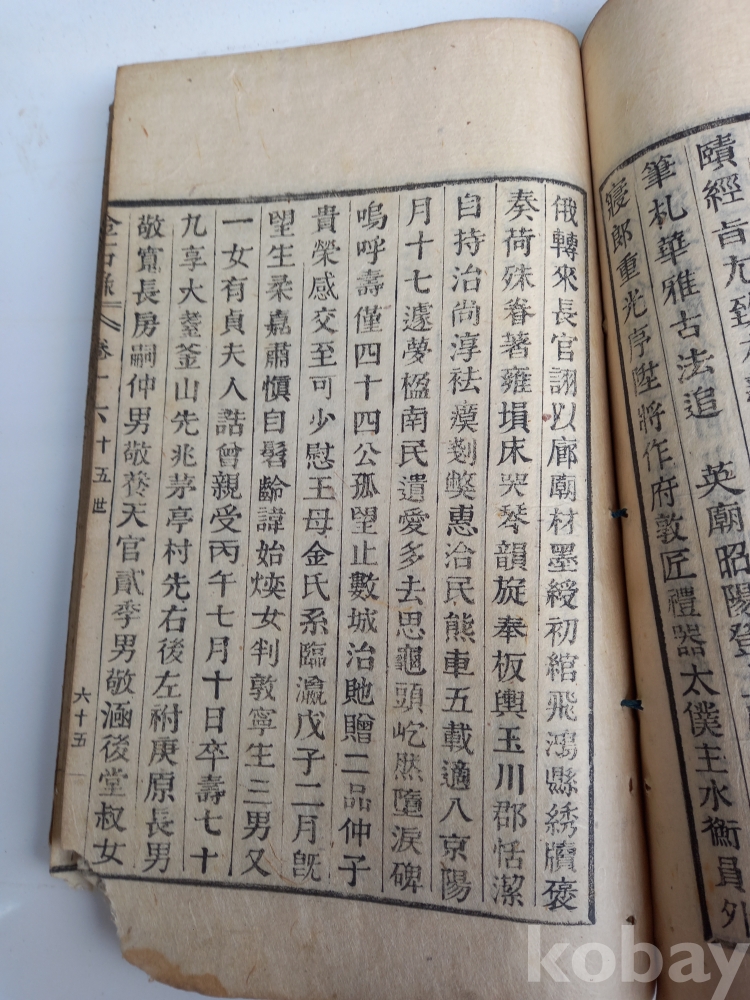 賾經旨尤致
筆札華雅古法追 英廟昭陽登
寢郞重光亭陞將作府敦匠禮器太僕主水衡員外
俄轉來長官詡以廊廟材墨綬初綰飛鴻縣綉牘褒
奏荷殊眷著雍塤床哭琴韻旋奉板輿玉川郡恬潔
自持治尙淳袪瘼剗弊惠洽民熊車五載適入京陽
月十七遽夢楹南民遺愛多去思龜頭屹然墮淚碑
嗚呼壽僅四十四公孤望止數城治貤贈二品仲子
貴榮感交至可少慰王母金氏系臨瀛戊子二月旣
望生柔嘉肅愼自髫齡諱始煐女判敦寧生三男又
一女有貞夫人誥曾親受丙午七月十日卒壽七十
九享大耋釜山先兆茅亭村先右後左祔庚原長男
敬寬長房嗣仲男敬養天官貳季男敬涵後堂叔女
卷十六 十五世
六十五
kobay